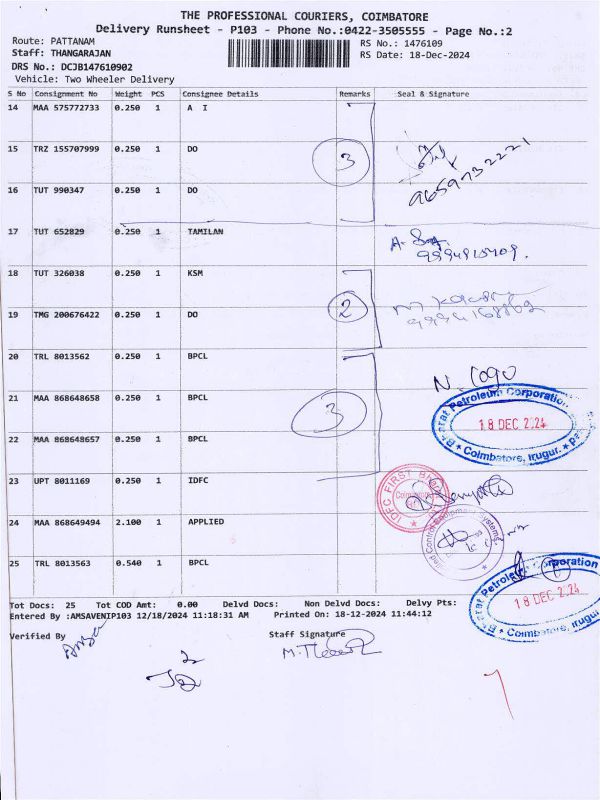 THE PROFESSIONAL COURIERS, COIMBATORE
Delivery Runsheet - P103 - Phone No.:0422-3505555 - Page No.:2
Route: PATTANAM
RS No.: 1476109
Staff: THANGARAJAN
RS Date: 18-Dec-2024
DRS No.: DCJB147610902
Vehicle: Two Wheeler Delivery
S No Consignment No Weight PCS Consignee Details Remarks Seal & Signature
14 MAA 575772733 0.250 1 A I
15 TRZ 155707999 0.250 1 DO
3
9659732221
16 TUT 990347 0.250 1 DO
17 TUT 652829 0.250 1 TAMILAN
18 TUT 326038 0.250 1 KSM
19 TMG 200676422 0.250 1 DO
2
20 TRL 8013562 0.250 1 BPCL
21 MAA 868648658 0.250 1 BPCL
3
Bharat Petroleum Corporation
18 DEC 2024
Coimbatore, Irugur.
22 MAA 868648657 0.250 1 BPCL
23 UPT 8011169 0.250 1 IDFC
IDFC FIRST
24 MAA 868649494 2.100 1 APPLIED
25 TRL 8013563 0.540 1 BPCL
Petroleum Corporation
18 DEC 2024
Coimbatore, Irugur
Tot Docs: 25 Tot COD Amt: 0.00 Delvd Docs: Non Delvd Docs: Delvy Pts:
Entered By :AMSAVENIP103 12/18/2024 11:18:31 AM Printed On: 18-12-2024 11:44:12
Verified By Staff Signature